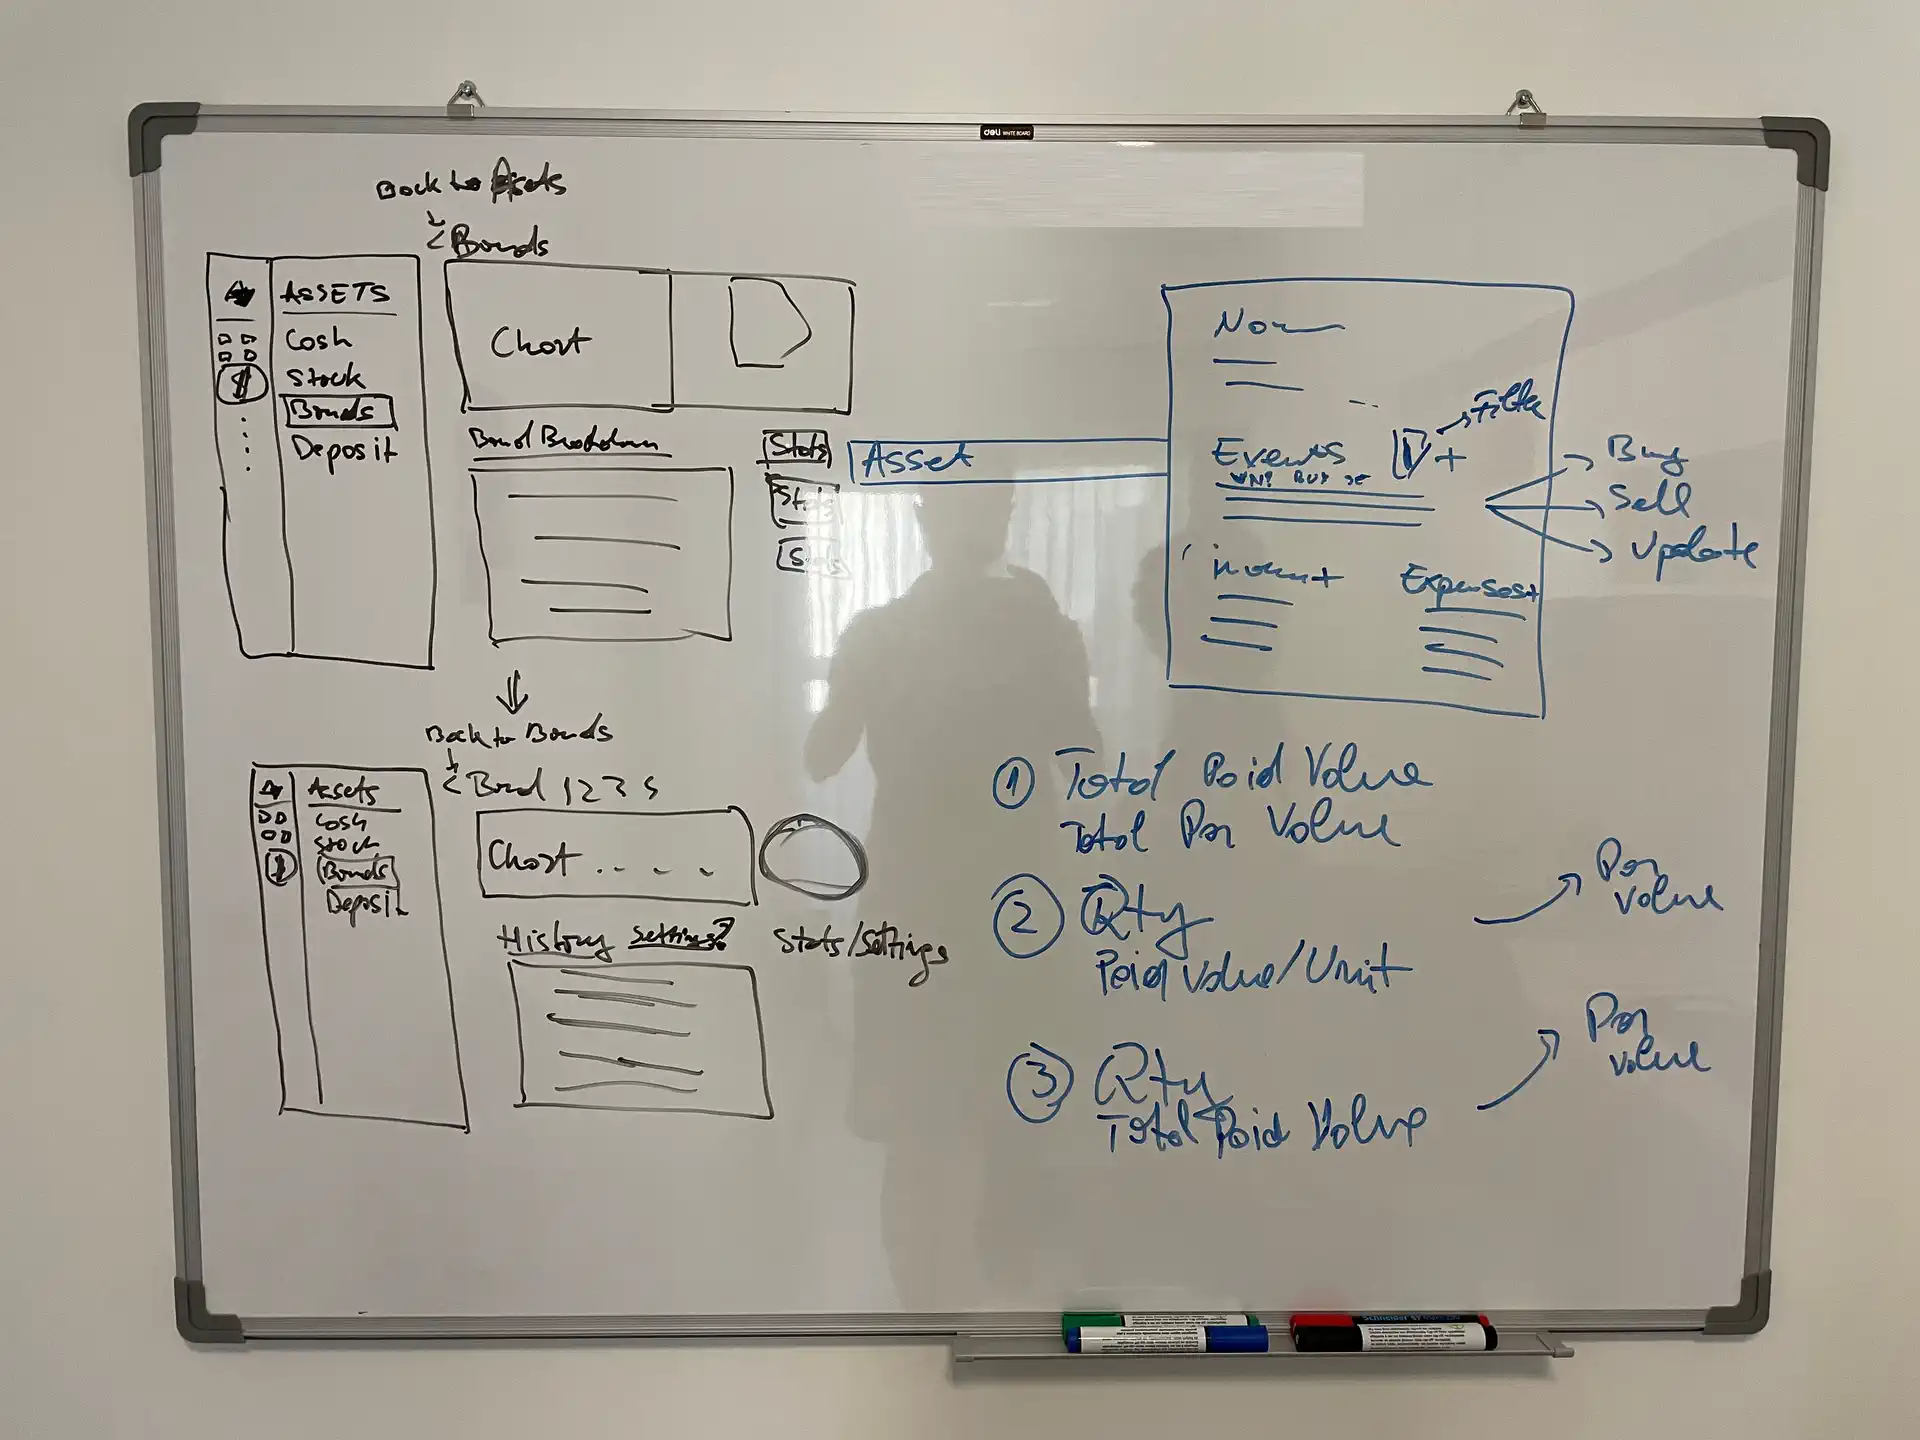 deli WHITE BOARD
Back to Assets
< Bonds
ASSETS
Cash
Stock
Bonds
Deposit
Chart
Bond Breakdown
Stats
Stats
Stats
Back to Bonds
< Bond 123
Assets
Cash
Stock
Bonds
Deposit
Chart
History Settings?
Stats/Settings
Asset
Events +
Filter
Buy
Sell
Update
Expenses+
① Total Paid Value
Total Par Value
② Qty
Paid Value/Unit
Par
Value
③ Qty
Total Paid Value
Par
Value
Schneider